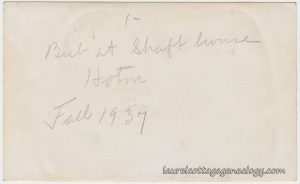 1-
Bub at Shaft house
Hoton
Fall 1937
laurelcottagegenealogy.com